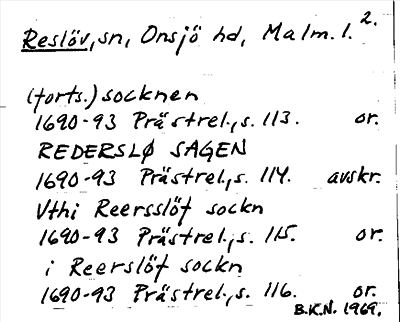 Reslöv, sn, Onsjö hd, Malm. l. 2.
(forts.) socknen
1690-93 Prästrel., s. 113. or.
REDERSLØ SAGEN
1690-93 Prästrel., s. 114. avskr.
Vthi Reersslöf sockn
1690-93 Prästrel., s. 115. or.
i Reerslöf sockn
1690-93 Prästrel., s. 116. or.
B.K.N. 1969.